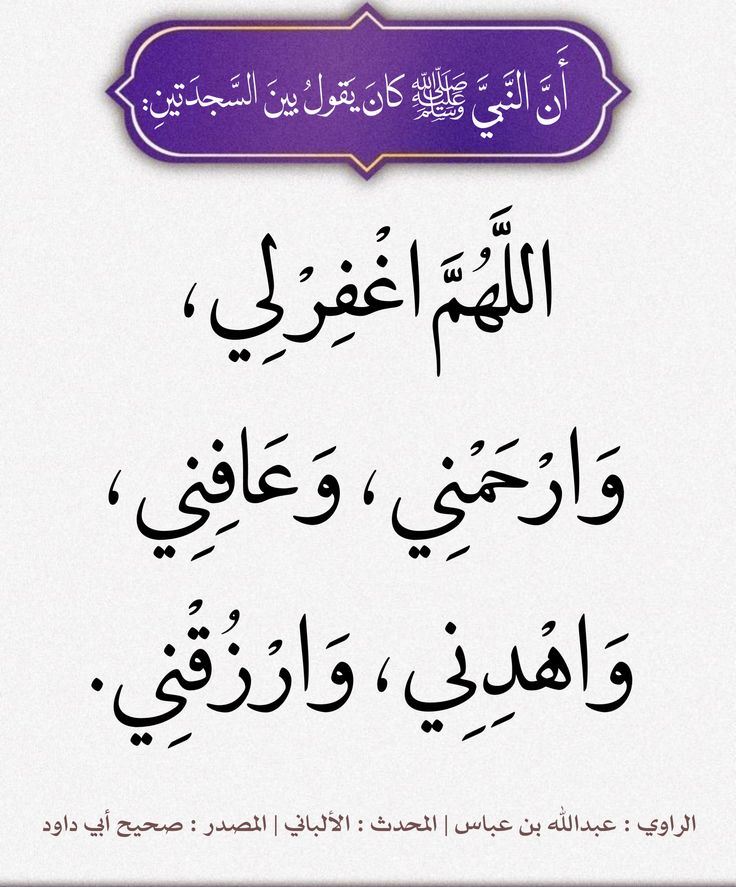 أَنَّ النَّبيَّ ﷺ كانَ يَقولُ بينَ السَّجدَتينِ:
اللَّهُمَّ اغْفِرْ لِي،
وَارْحَمْنِي، وَعَافِنِي،
وَاهْدِنِي، وَارْزُقْنِي.
الراوي : عبدالله بن عباس | المحدث : الألباني | المصدر : صحيح أبي داود